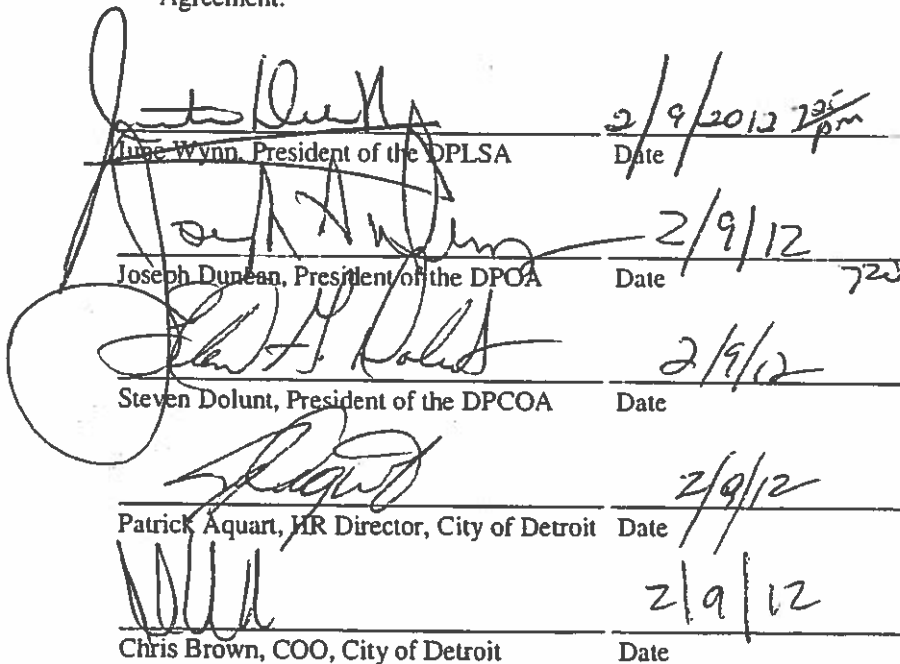 Agreement.
2/9/2012 725 pm
June Wynn, President of the DPLSA Date
2/9/12
Joseph Duncan, President of the DPOA Date 720
2/9/12
Steven Dolunt, President of the DPCOA Date
2/9/12
Patrick Aquart, HR Director, City of Detroit Date
2/9/12
Chris Brown, COO, City of Detroit Date